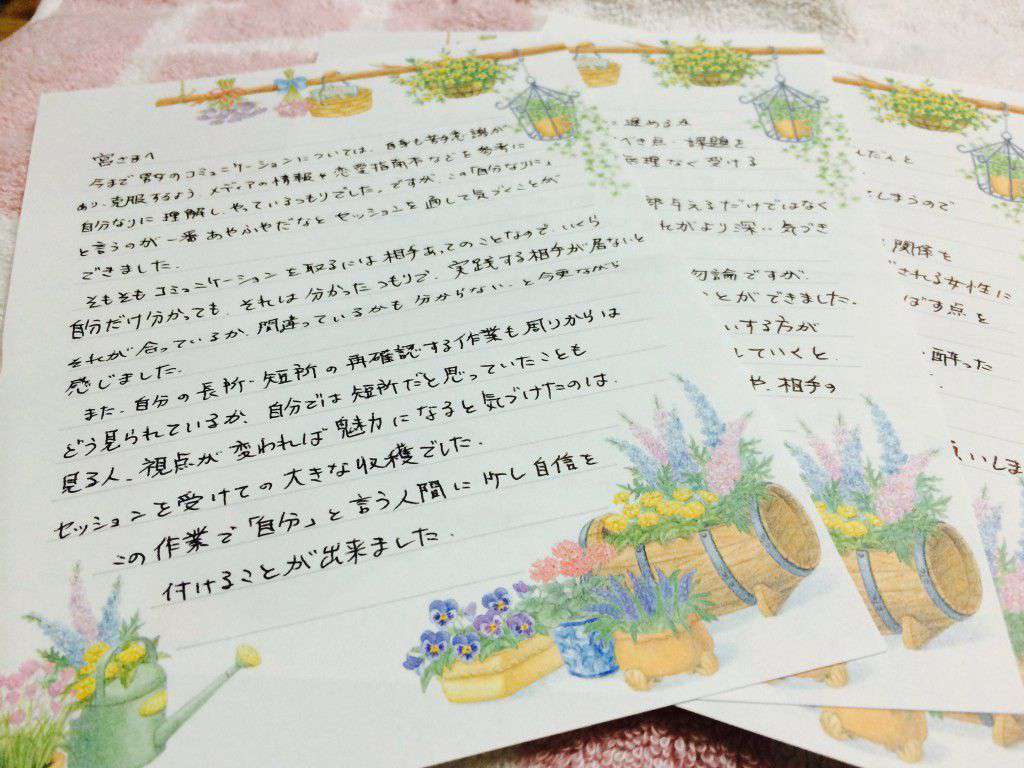 宮さまへ
今まで男女のコミュニケーションについては、苦手意識が
あり、克服するよう、メディアの情報や恋愛指南本などを参考に
自分なりに理解し、やっているつもりでした。ですが、この「自分なりに」
と言うのが一番あやふやだなと セッションを通して気づくことが
できました。
そもそもコミュニケーションを取るには相手あってのことなので、いくら
自分だけ分かっても、それは分かったつもりで、実践する相手が居ないと
それが合っているか、間違っているかも分からない、と今更ながら
感じました。
また、自分の長所・短所の再確認する作業も周りからは
どう見られているか、自分では短所だと思っていたことも
見る人、視点が変われば魅力になると気づけたのは、
セッションを受けての大きな収穫でした。
この作業で「自分」と言う人間に少し自信を
付けることが出来ました。
進める上
べき点・課題を
無理なく受ける
築与えるだけではなく
れがより深い気づき
勿論ですが、
ことができました。
いする方が
していくと、
や、相手の
だんと
しまうので
関係を
される女性に
ぼす点を
酔った
いいしま